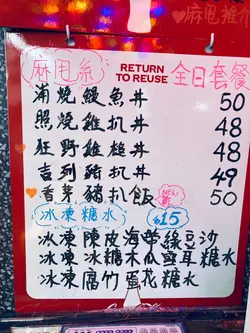 麻甩推介
麻甩系
RETURN
TO REUSE
全日套餐
蒲燒鰻魚丼 50
照燒雞扒丼 48
狂野雞槌丼 48
吉列豬扒丼 49
香茅豬扒飯 NEW 50
冰凍糖水 $15
冰凍陳皮海帶綠豆沙
冰凍冰糖木瓜雪耳糖水
冰凍腐竹蛋花糖水